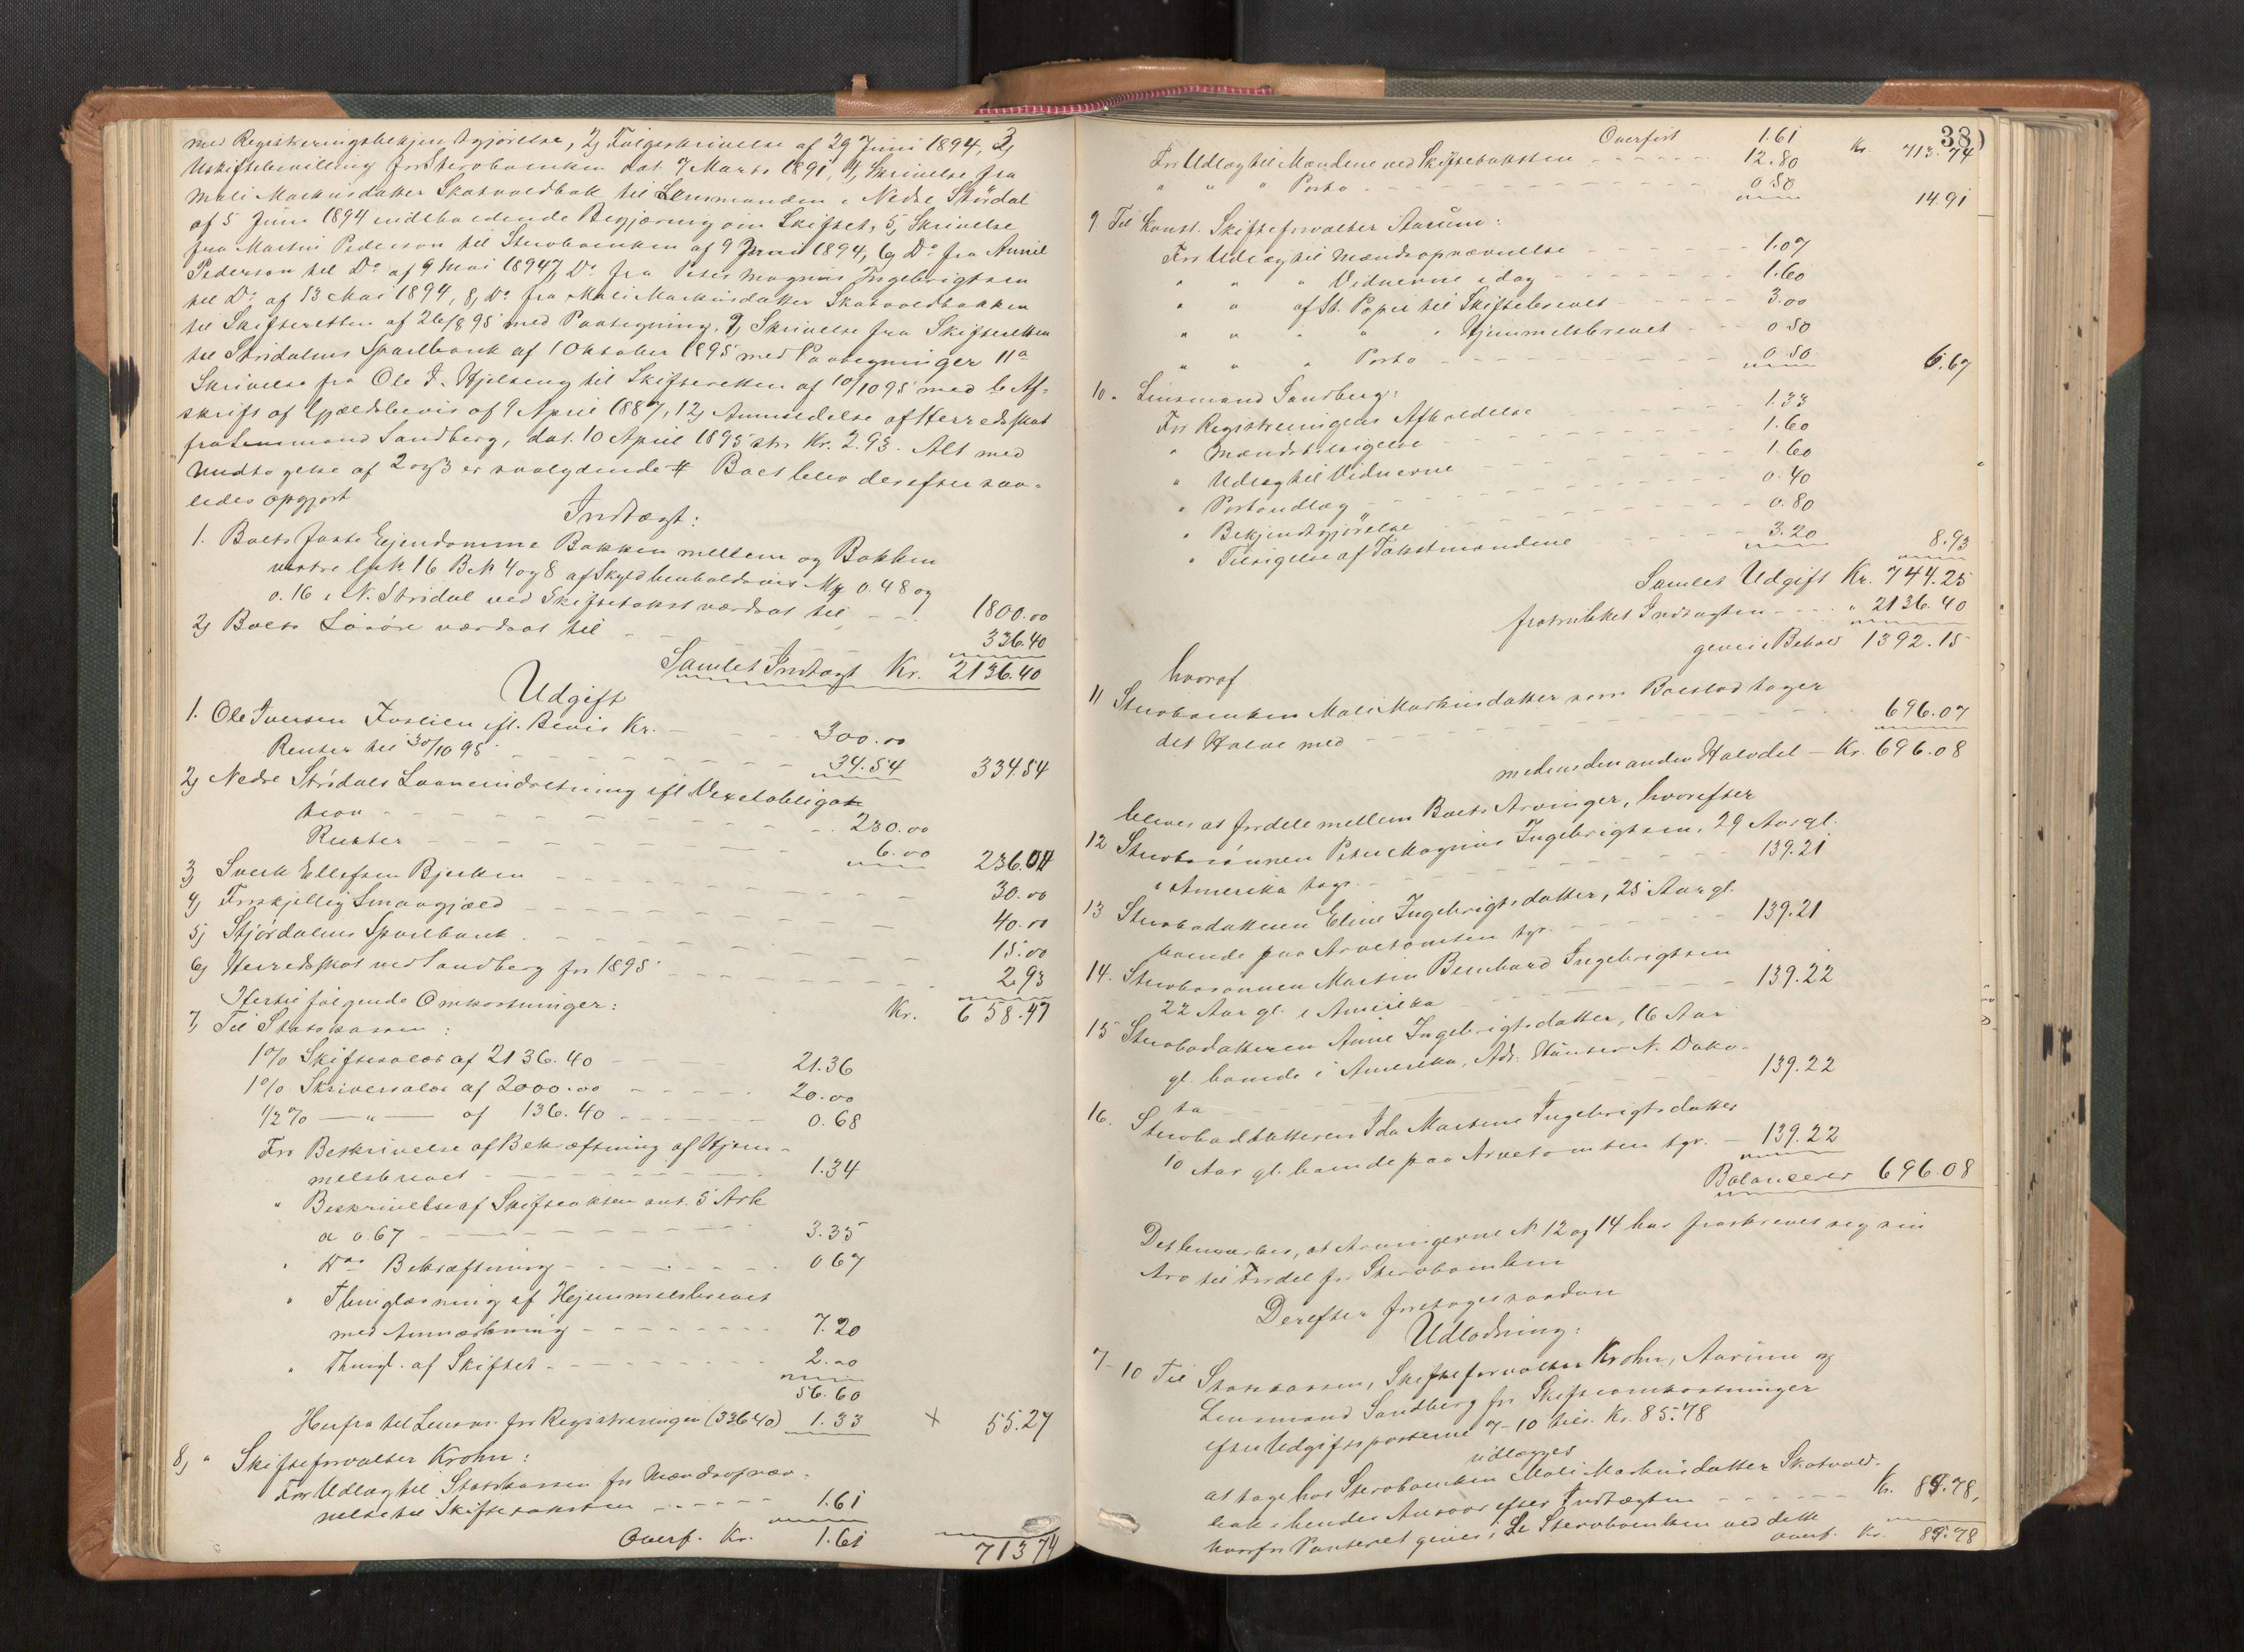 med Registreringsbekjendtgjørelse, 2) Følgeskrivelse af 29 Juni 1894, 3)
Uskiftebevilling for Sterboenken dat. 7 Marts 1891, 4) Skrivelse fra
Mali Markusdatter Skatvoldbak til Lensmanden i Nedre Stördal
af 5 Juni 1894 indeholdende Begjæring om Skiftet, 5) Skrivelse
fra Martin Pederson til Sterboenken af 9 Juni 1894, 6) Do fra Annie
Pederson til Do af 9 Mai 1894 7) Do fra Peter Magnus Ingebrigtsen
til Do af 13 Mai 1894, 8) Do fra Mali Markusdatter Skatvoldbakken
til Skifteretten af 26/8 95 med Paategning, 9) Skrivelse fra Skifteretten
til Strdalens Sparebank af 1 Oktober 1895 med Paategninger 11a
Skrivelse fra Ole I. Hjelseng til Skifteretten af 10/10 95 med b Af-
skrift af Gjældsbevis af 9 April 1887, 12) Anmeldelse af Herredsskat
fra Lensmand Sandberg, dat. 10 April 1895 str. Kr. 2.93. Alt med
Undtagelse af 2 og 3 er saalydende # Boet blev derefter saa-
ledes opgjort
Indtægt:
1. Boets faste Ejendomme Bakken mellem og Bakken
vestre G.No 16 B.No 4 og 8 af Skyld henholdsvis Mk 0.48 og
0.16 i N. Strdal ved Skiftetakst værdsat til - - 1800.00
2) Boets Løsøre værdsat til - - - 336.40
Samlet Indtægt Kr. 2136.40
Udgift
1. Ole Iversen Fuslien ifl. Bevis Kr. - - - 300.00
Renter til 30/10 95 - - - 34.54 334.54
2) Nedre Strdals Laaneindretning ifl Vexelobliga-
tion - - - 230.00
Renter - - - 6.00 236.00
3) Sverk Ellefsen Bjerken - - - 30.00
4) Forskjellig Smaagjæld - - - 40.00
5) Stjördalens Sparebank - - - 15.00
6) Herredsskat ved Sandberg for 1895 - - - 2.93
Hertil følgende Omkostninger: Kr. 658.47
7) Til Statskassen:
1% Skiftesalær af 2136.40 - - - 21.36
1% Skriversalær af 2000.00 - - - 20.00
1/2% — " — af 136.40 - - - 0.68
For Beskrivelse af Bekræftning af Hjem-
melsbrevet - - - 1.34
" Beskrivelse af Skifteakten ant. 5 Ark
a 0.67 - - - 3.35
" Do Bekræftning - - - 0.67
" Thinglæsning af Hjemmelsbrevet
med Anmærkning - - - 7.20
" Thingl. af Skiftet - - - 2.00
56.60
Herfra til Lensm. for Registreringen (336.40) 1.33 × 55.27
8) " Skifteforvalter Krohn:
For Udlæg til Statskassen for Mændsopnæv-
nelse til Skiftetaksten - - - 1.61
Overf. Kr. 1.61 713.74
38)
Overført 1.61 Kr. 713.74
For Udlæg til Mændene ved Skiftetaksten - - - 12.80
" " " Porto - - - 0.50 14.91
9 Til Konst. Skifteforvalter Aarum:
For Udlæg til Mændsopnævnelse - - - 1.07
" " " Vidnerne i dag - - - 1.60
" " af St. Papir til Skiftebrevet - - 3.00
" " " " " Hjemmelsbrevet - - 0.50
" " " Porto - - - 0.50 6.67
10 " Lensmand Sandberg:
For Registreringens Afholdelse - - 1.33
" Mændstilsigelse - - - 1.60
" Udlæg til Vidnerne - - - 1.60
" Portoudlæg - - - 0.40
" Bekjendtgjörelse - - - 0.80
" Tilsigelse af Takstmændene - - - 3.20 8.93
Samlet Udgift Kr. 744.25
fratrukket Indtægten - - - " 2136.40
giver i Behold 1392.15
hvoraf
11 Sterboenken Mali Markusdatter som Boeslod tager
det Halve med - - - 696.07
medens den anden Halvdel — Kr. 696.08
bliver at fordele mellem Boets Arvinger, hvorefter
12 Sterbosönnen Peter Magnus Ingebrigtsen, 29 Aar gl.
i Amerika tager - - - 139.21
13 Sterbodatteren Eline Ingebrigtsdatter, 25 Aar gl.
boende paa Arvetomten tgr. - - - 139.21
14. Sterbosønnen Martin Bernhard Ingebrigtsen
22 Aar gl. i Amerika - - - 139.22
15 Sterbodatteren Anne Ingebrigtsdatter, 16 Aar
gl. boende i Amerika, Adr: Hunter N. Dako-
ta - - - 139.22
16. Sterbodatteren Ida Martine Ingebrigtsdatter
10 Aar gl. boende paa Arvetomten tgr. — 139.22
Balancerer 696.08
Det bemærkes, at Arvingerne No 12 og 14 har fraskrevet sig sin
Arv til Fordel for Sterboenken
Derefter foretages saadan
Udlodning:
7-10 Til Statskassen, Skifteforvalter Krohn, Aarum og
Lensmand Sandberg for Skifteomkostninger
efter Udgiftsposterne 7-10 tils. Kr. 85.78
udlægges
at tage hos Sterboenken Mali Markusdatter Skatvold-
bak i hendes Ansvar efter Indtægten - - - Kr. 85.78,
hvorfor Panteret gives i Sterboenken ved dette
Overf. Kr. 85.78